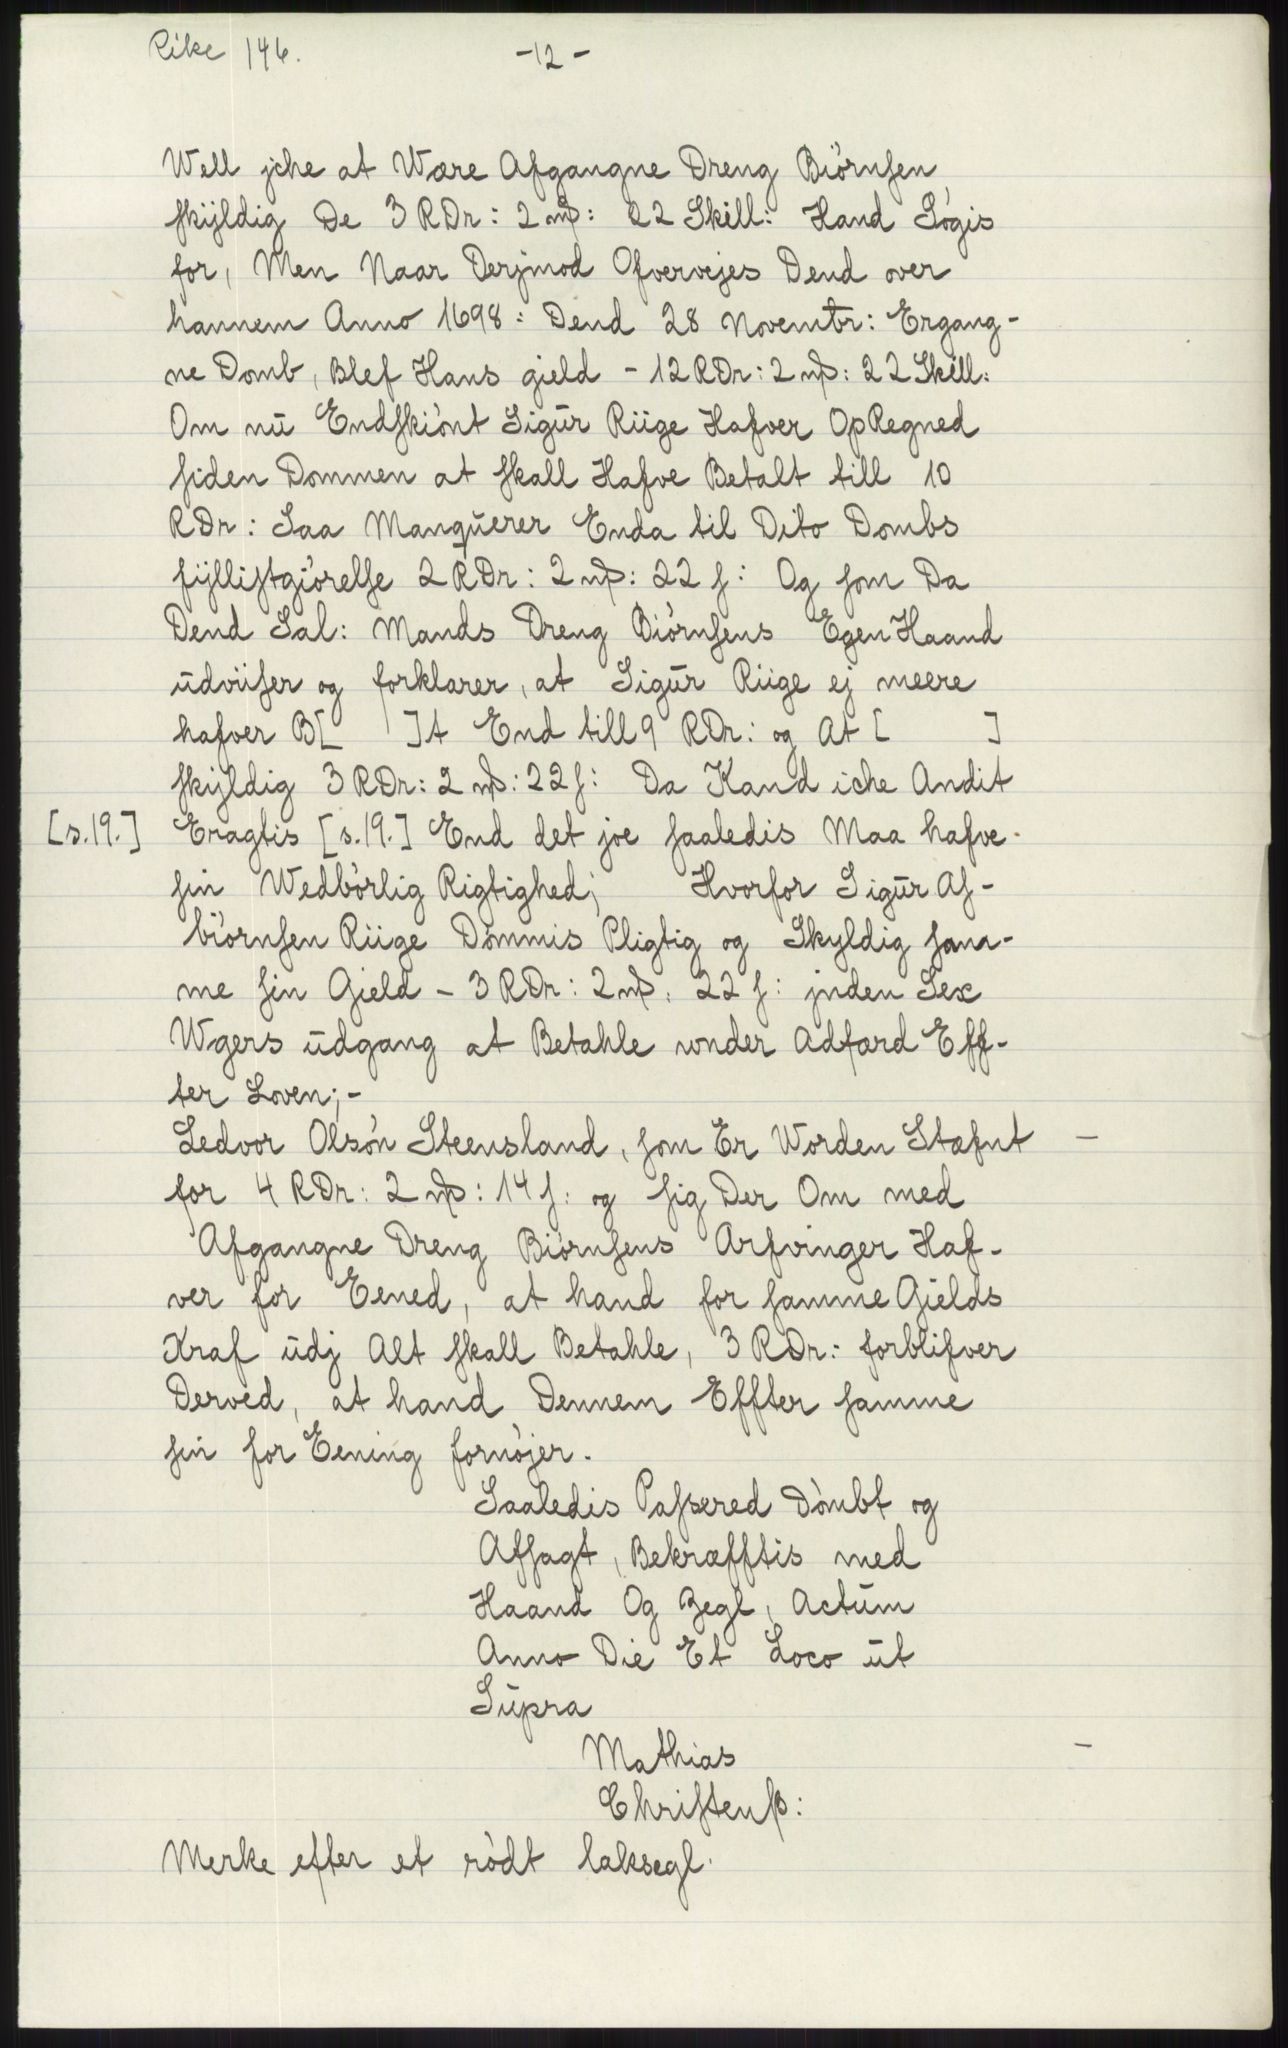 Rike 146.
-12-
Well jche at Være Afgangne Dreng Biørnsen
skÿldig De 3 RDr: 2 mβ: 22 Skill: Hand Søgis
for, Men Naar Derjmod Ofvervejes Dend over
hannem Anno 1698: Dend 28 Novembr: Ergang-
ne Domb, Blef Hans gield - 12 RDr: 2 mβ: 22 Skill:
Om nū Endskiønt Sigūr Riige Hafver OpRegned
siden Dommen at skall Hafve Betalt till 10
RDr: Saa Manqūerer Enda til Dito Dombs
fÿllistgiørelse 2 RDr: 2 mβ: 22 s: Og som Da
Dend Sal: Mands Dreng Biørnsens Egen Haand
ūdviiser og forklarer, at Sigūr Riige ej meere
hafver B[ ]t End till 9 RDr: og At [ ]
skÿldig 3 RDr: 2 mβ: 22 s: Da Kand iche Andit
[s.19.] Eragtis [s.19.] End det joe saaledis Maa hafve
sin Wedbørlig Rigtighed; Hvorfor Sigūr As-
biørnsen Riige Dømmis Pligtig og Skyldig sam-
me sin Gield - 3 RDr: 2 mβ: 22 s: jnden Sex
Wgers ūdgang at Betahle wnder Adfærd Eff-
ter Loven; -
Ledvor Olsøn Steensland, som Er Worden Stæfnt -
for 4 RDr: 2 mβ: 14 s: og sig Der Om med
Afgangne Dreng Biørnsens Arfvinger Haf-
ver for Eened, at hand for samme Gields
Kraf ūdj Alt skall Betahle, 3 RDr: forblifver
Derved, at hand Dennem Effter samme
sin for Eening fornøjer.
Saaledis Passered Dømbt og
Afsagt, Bekræfftis med
Haand Og Zegl, Actūm
Anno Die Et Loco ūt
Sūpra
Mathias -
Christenß:
Merke efter et rødt laksegl.